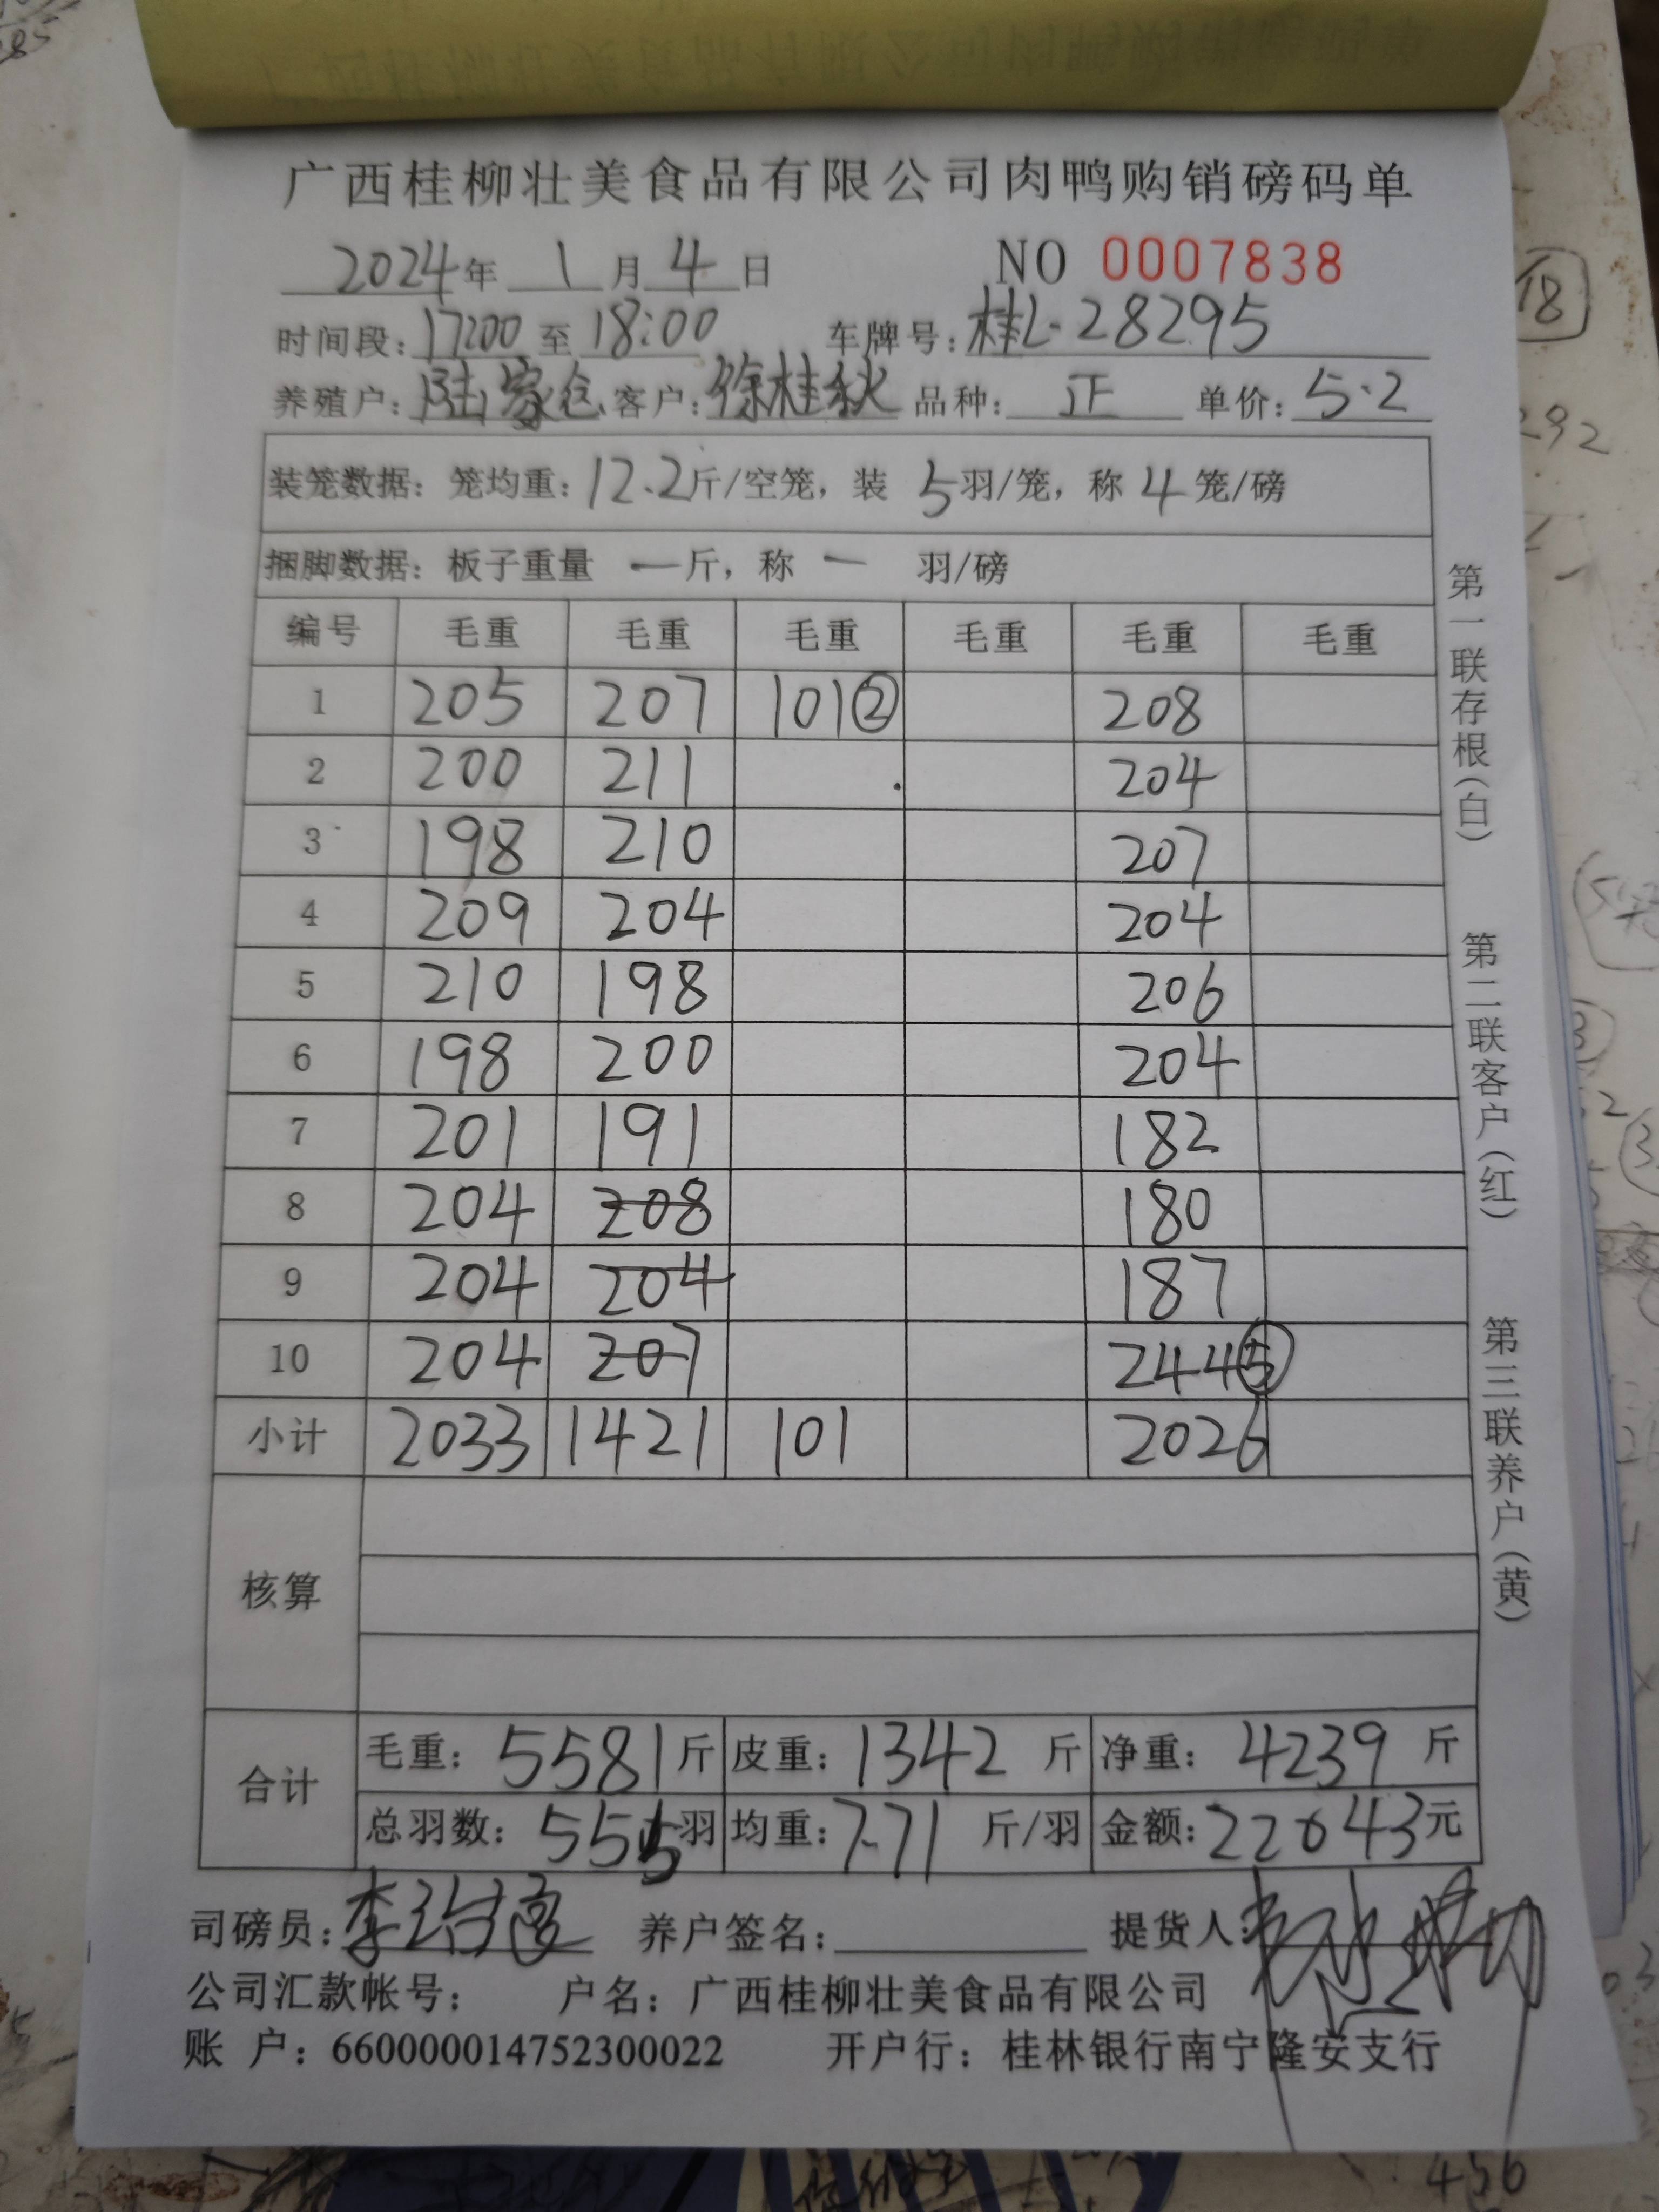 广西桂柳壮美食品有限公司肉鸭购销磅码单
2024年 1月 4日 NO 0007838
时间段: 17:00 至 18:00 车牌号: 桂L·28295
养殖户: 陆家 客户: 徐桂秋 品种: 正 单价: 5.2
装笼数据: 笼均重: 12.2斤/空笼, 装 5羽/笼, 称 4 笼/磅
捆脚数据: 板子重量 一斤, 称 一 羽/磅
编号 毛重 毛重 毛重 毛重 毛重 毛重
1 205 207 101② 208
2 200 211 204
3 198 210 207
4 209 204 204
5 210 198 206
6 198 200 204
7 201 191 182
8 204 208 180
9 204 204 187
10 204 207 244⑤
小计 2033 1421 101 2026
核算
合计
毛重: 5581斤 皮重: 1342 斤 净重: 4239 斤
总羽数: 555羽 均重: 7.71 斤/羽 金额: 22043元
司磅员: 李 养户签名: 提货人:
公司汇款帐号: 户名: 广西桂柳壮美食品有限公司
账 户: 660000014752300022 开户行: 桂林银行南宁隆安支行
第一联存根(白)
第二联客户(红)
第三联养户(黄)
18
292
456